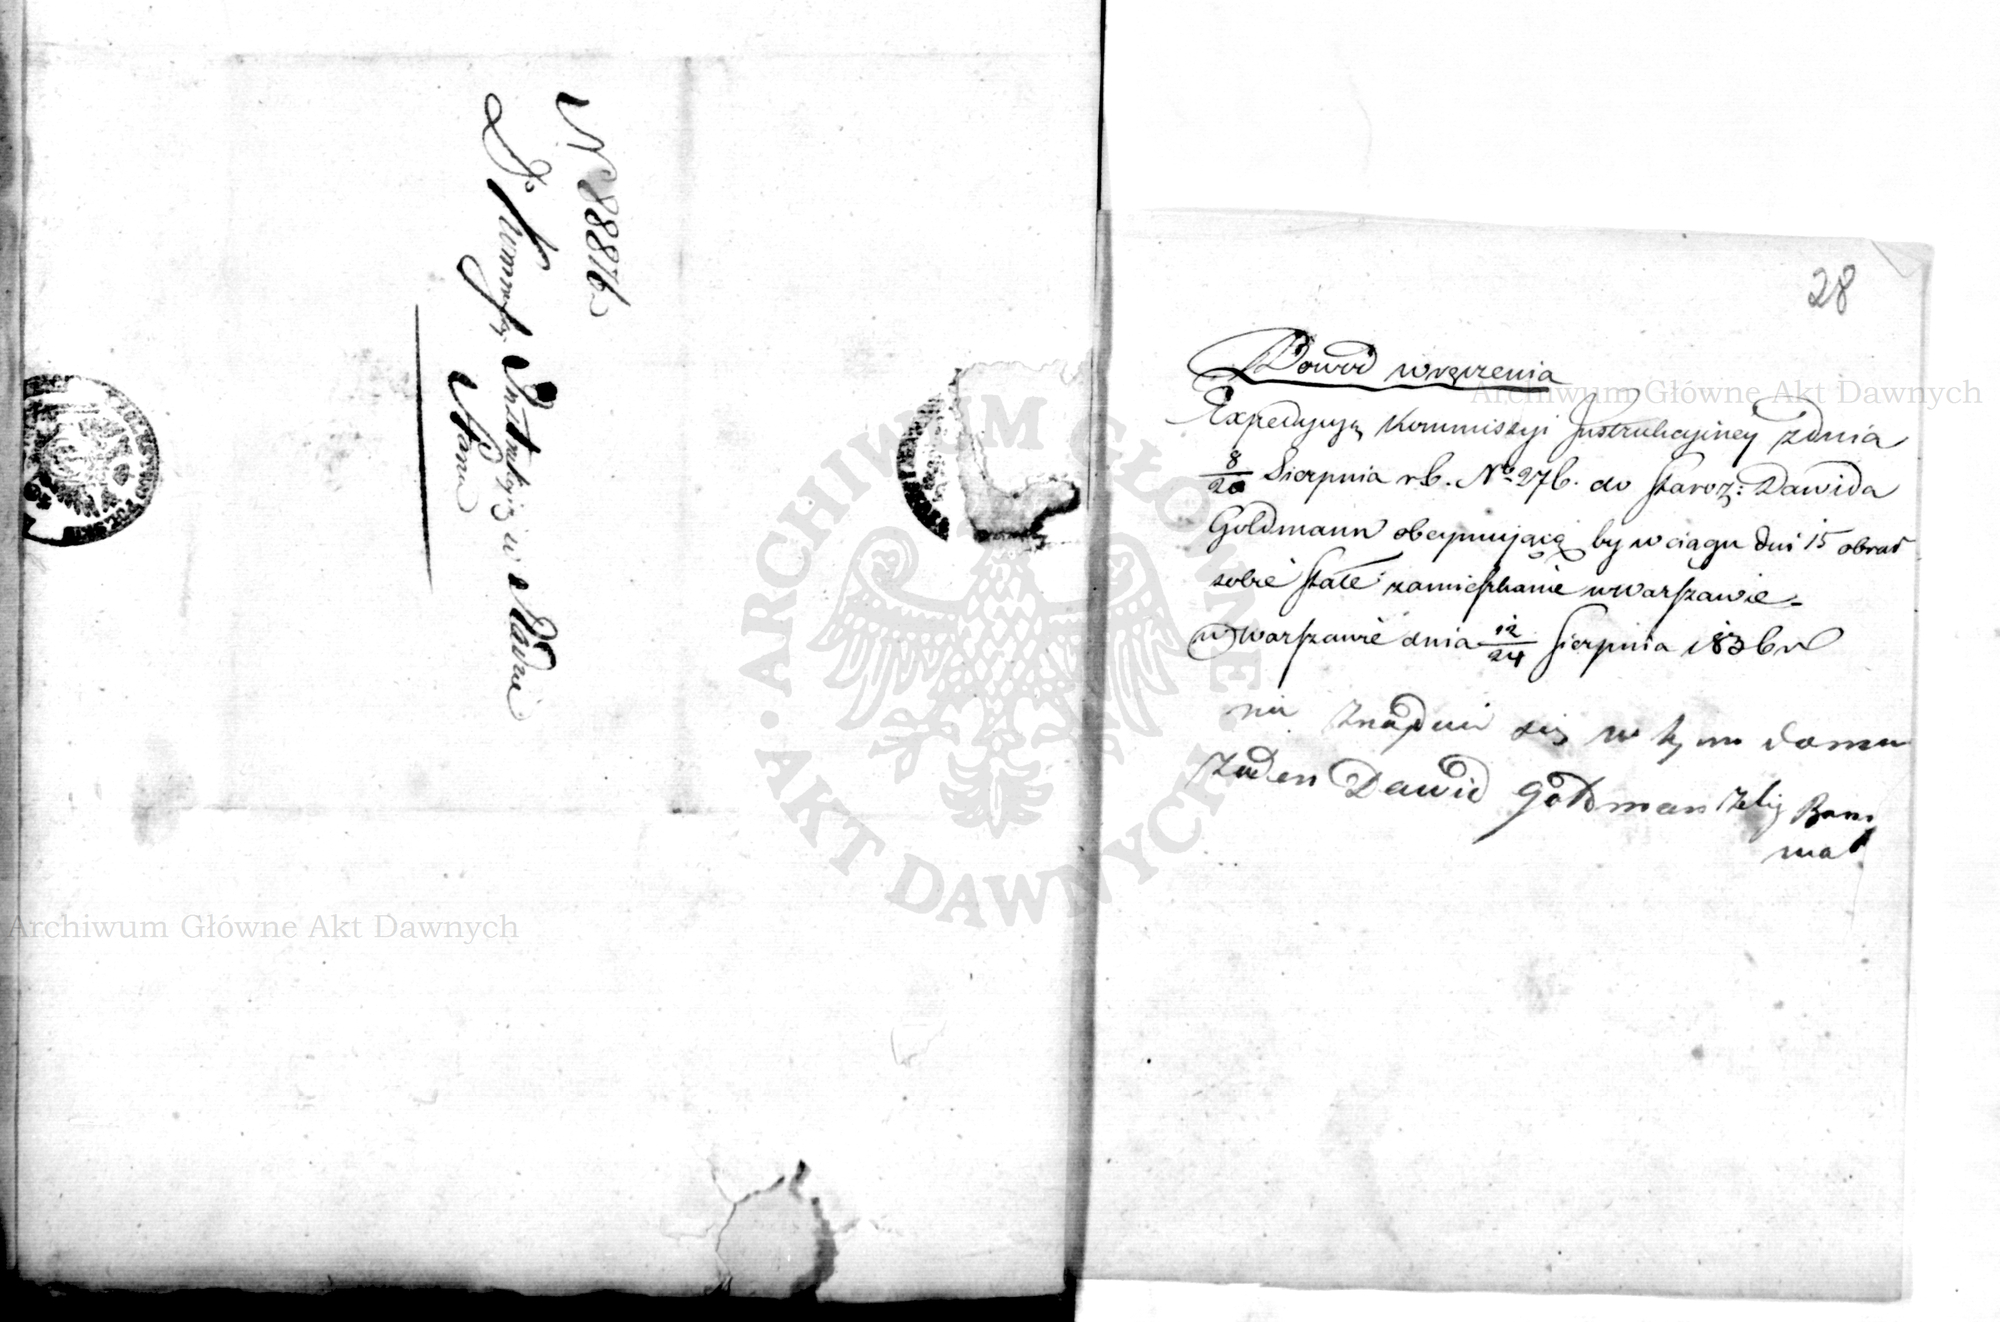 No 88816
Do Kommissyi Instrukcyjnej w
Stanu
28
Dowod wręczenia
Expedycyą Kommissyi Instrukcyiney z dnia
8/20 Sierpnia r b. No 276. do staroz: Dawida
Goldmann obeymującą by w ciągu dni 15 obrał
sobie stałe zamieszkanie w Warszawie
w Warszawie dnia 12/24 Sierpnia 1836 r
nie znayduie się w tym domu
żaden Dawid Goldman Zelig
Archiwum Główne Akt Dawnych
Archiwum Główne Akt Dawnych
ARCHIWUM GŁÓWNE
AKT DAWNYCH